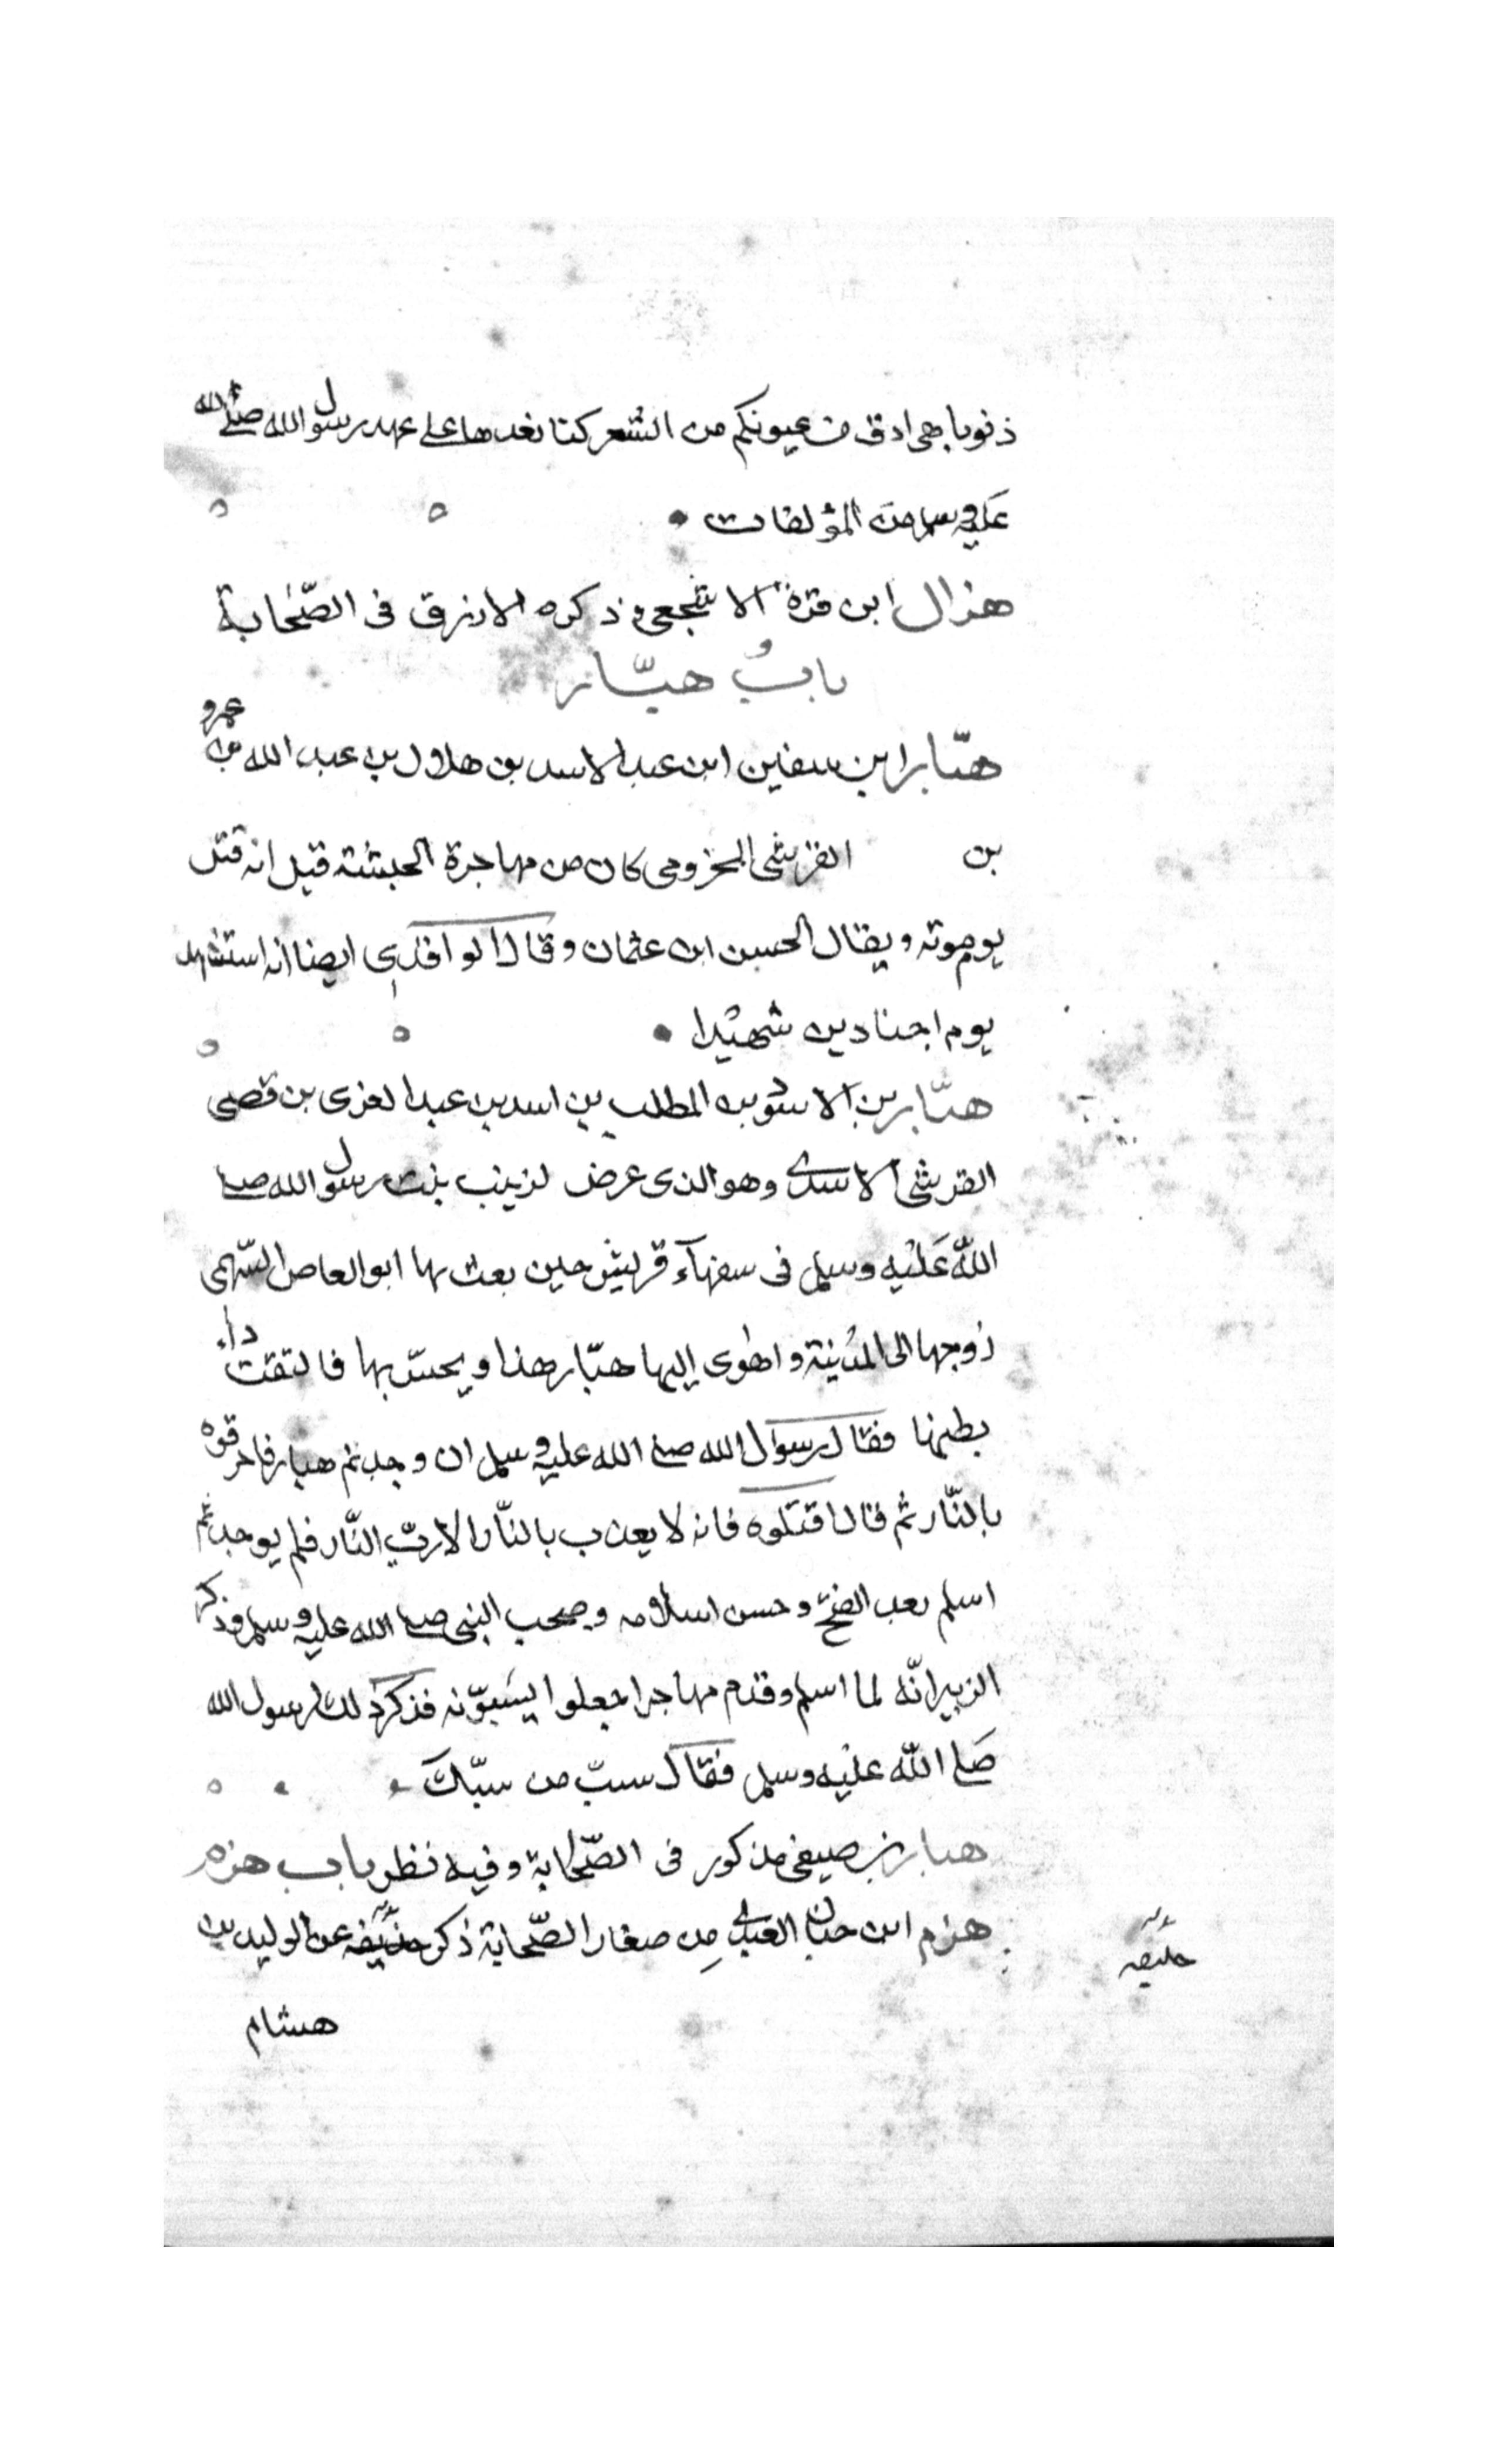 ذنوبا هى ادق فى عيونكم من الشعر كنا نعدها على عهد رسول الله صلى الله
عليه وسلم من المؤلفات
هزال ابن قرة الاشجعى وذكره الازرق فى الصّحابة
بابُ هبّار
هبّار ابن سفين ابن عبد الاسد بن هلال بن عبد الله بن عمرو
بن القرشى المخزومى كان من مهاجرة الحبشة قيل انه قتل
يوم موته ويقال الحسن ابن عثمان وقال الواقدى ايضا انه استشهد
يوم اجنادين شهيدا
هبّار بن الاسود بن المطلب بن اسد بن عبد العزى بن قصى
القرشى الاسدى وهو الذى عرض لزينب بنت رسول الله صلى
اللّه عَليْه وسلم فى سفهآء قريش حين بعث بها ابو العاص السّهمى
زوجها الى المدينة واهوى إليها هبّار هذا و بها فالتقت داء
بطنها فقال رسول الله صلى الله عليه وسلم ان وجدتم هبار فاحرقوه
بالنّار ثم قال اقتلوه فانه لا يعذب بالنّار الا ربّ النّار فلم يوجد ثم
اسلم بعد الفتح وحسن اسلامه وصحب النبى صلى الله عليه وسلم وذكر
الزبير انّه لما اسلم وقدم مهاجرا جعلوا يسَبوّنه فذكر ذلك لرسول الله
صَلى اللّه عليْه وسلم فقال سبّ من سبّكَ
هبار بن صيفى مذكور فى الصّحابة وفيه نظر باب هزم
هزم ابن حنان العبدى مِن صغار الصّحابة ذكر خليفه عن الوليد بن
خليفه
هشام